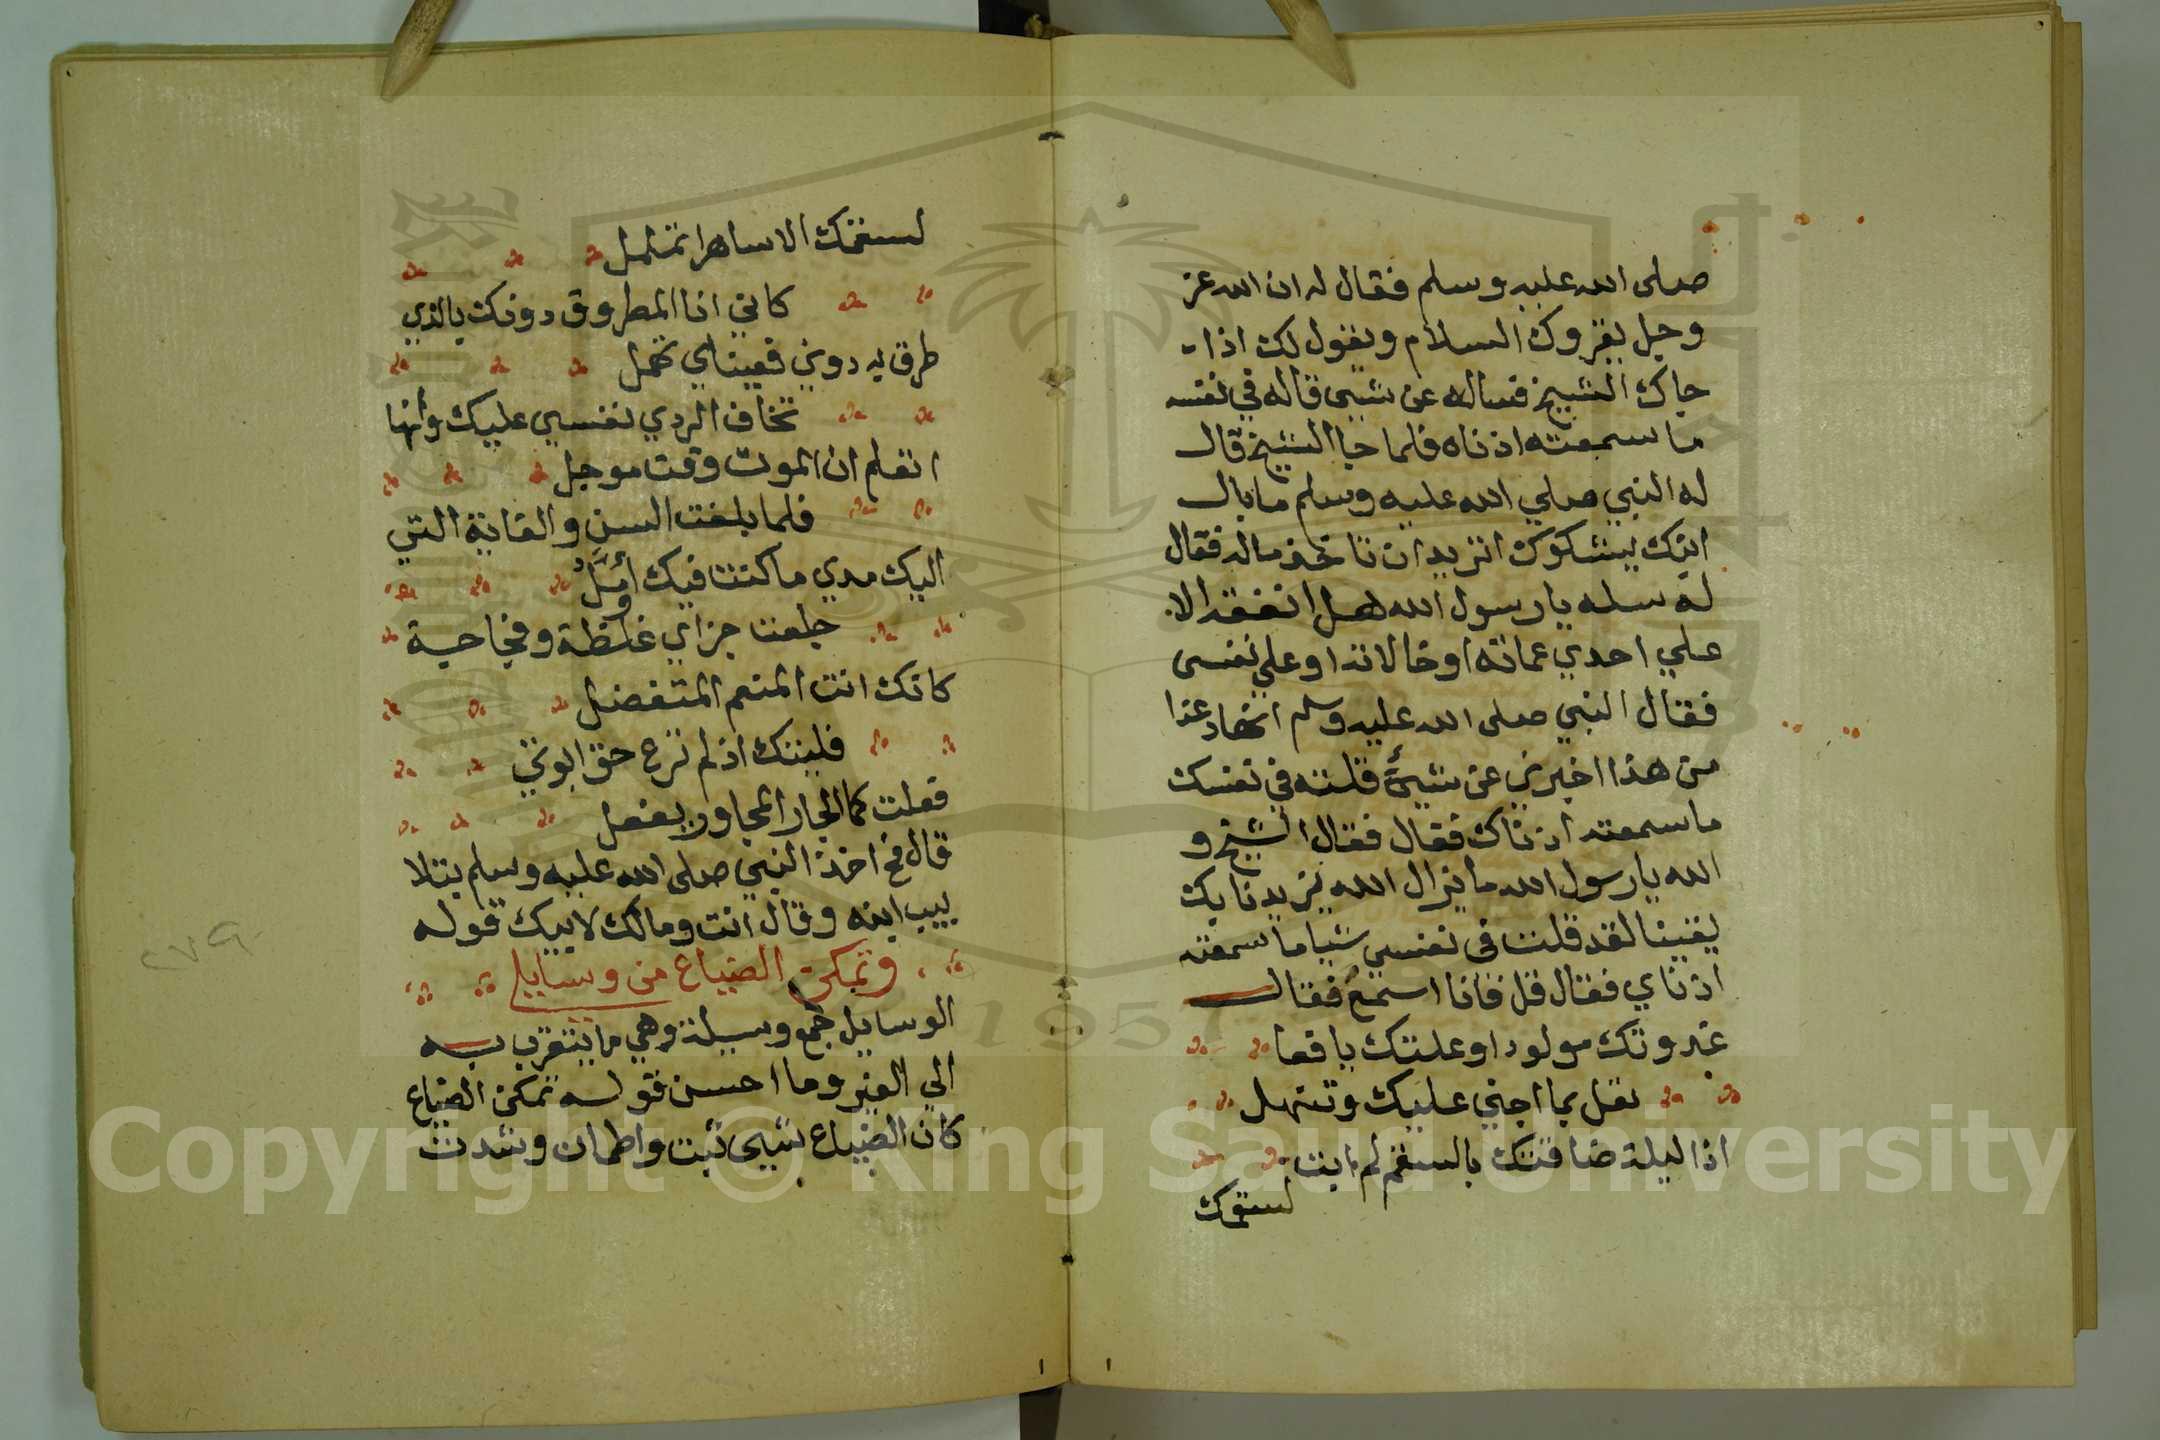 صلى الله عليه وسلم فقال له ان الله عز
وجل يقروك السلام ويقول لك اذا
جاك الشيخ فساله عن شيى قاله في نفسه
ما سمعته اذناه فلما جا الشيخ قال
له النبي صلي الله عليه وسلم ما بال
ابنك يشكوك اتريد ان تاخذ ماله فقال
له سله يا رسول الله هل انفقه الا
علي احدي عماته او خالاته او علي نفسى
فقال النبي صلى الله عليه وسلم
من هذا اخبرني عن شيئ قلته في نفسك
ما سمعته اذناك فقال فقال الشيخ و
الله يا رسول الله ما يزال الله يزيدنا بك
يقينا لقد قلت في نفسي شيا ما سمعته
اذناي فقال قل فانا اسمع فقال
غدوتك مولودا وعلتك يافعا
تعل بما اجني عليك وتنهل
اذا ليلة ضافتك بالسقم لم ابت
لسقمك
لسقمك الا ساهرا تململ
كاني انا المطروق دونك بالذي
طرق به دوني فعيناي تهمل
تخاف الردي نفسي عليك وانها
لتعلم ان الموت وقت موجل
فلما بلغت السن والغاية التي
اليك مدي ما كنت فيك أومل
جلعت جزاي غلظة وفجاجة
كانك انت المنعم المتفضل
فليتك اذ لم ترع حق ابوتي
فعلت كما الجار المجاور يفعل
قال فخ اخذ النبي صلى الله عليه وسلم بتلا
بيب ابنه وقال انت ومالك لابيك قوله
وتمكن الضياع من وسايلي
الوسايل جمع وسيلة وهي ما يتقرب به
الي الغير وما احسن قوله تمكن الضياع
كان الضياع شيى ثبت واطمان وشدت
٢٧٩
Copyright © King Saud University
1957